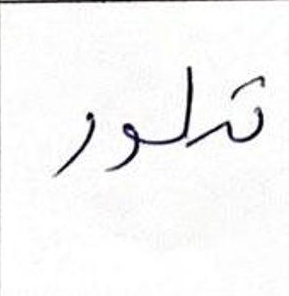 تدلور